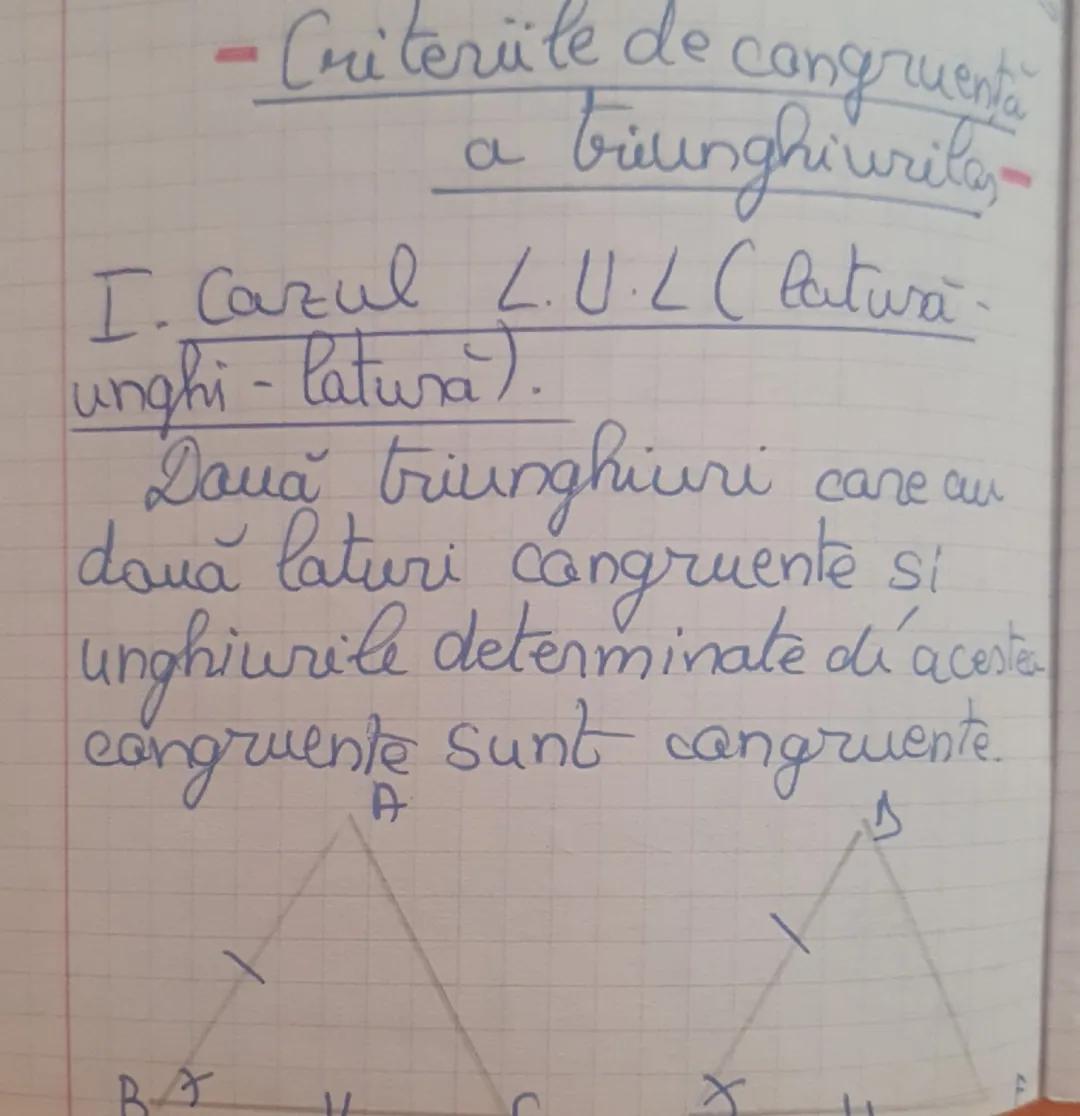 - Criteriile de congruență
a triunghiurilor -
I. Cazul L.U.L (latură-
unghi - latură).
Două triunghiuri care au
două laturi congruente si
unghiurile determinate de acestea
congruente sunt congruente.
A D
B C F